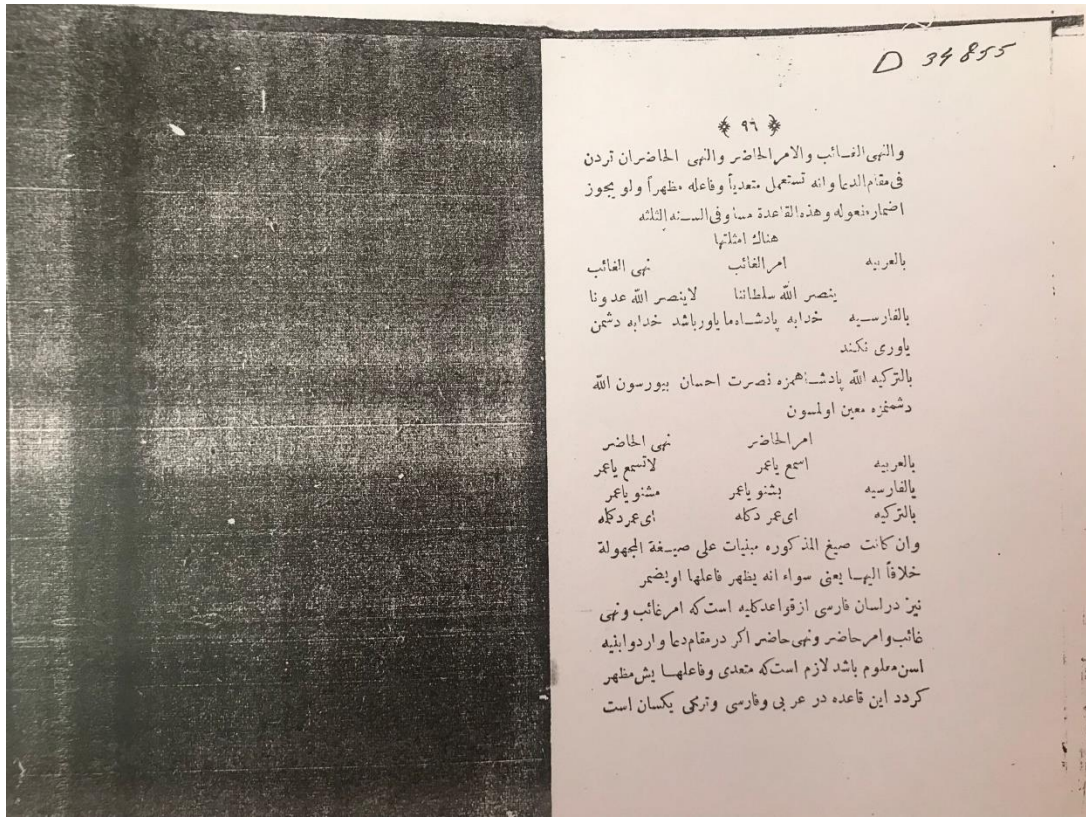 D 34855
﴿ ٩٦ ﴾
والنهى الغائب والامر الحاضر والنهى الحاضران تردن
فى مقام الدعا وانه تستعمل متعدياً وفاعله مظهراً ولو يجوز
اضمار مفعوله وهذه القاعدة مساوفى السنه الثلثه
هناك امثلتها
بالعربيه امر الغائب نهى الغائب
ينصر الله سلطاننا لاينصر الله عدونا
بالفارسيه خدابه پادشاه ما ياور باشد خدابه دشمن
ياورى نكند
بالتركيه الله پادشاهمزه نصرت احسان بيورسون الله
دشمنمزه معين اولمسون
امر الحاضر نهى الحاضر
بالعربيه اسمع ياعمر لاتسمع ياعمر
بالفارسيه بشنو ياعمر مشنو ياعمر
بالتركيه اى عمر دكله اى عمر دكله
وان كانت صيغ المذكوره مبنيات على صيغة المجهولة
خلافاً اليها يعنى سواء انه يظهر فاعلها اويضمر
نيز در لسان فارسى از قواعد كليه است كه امر غائب ونهى
غائب وامر حاضر ونهى حاضر اكر در مقام دعا وارد وابنيه
اسن معلوم باشد لازم است كه متعدى وفاعلهايش مظهر
كردد اين قاعده در عربى وفارسى وتركى يكسان است